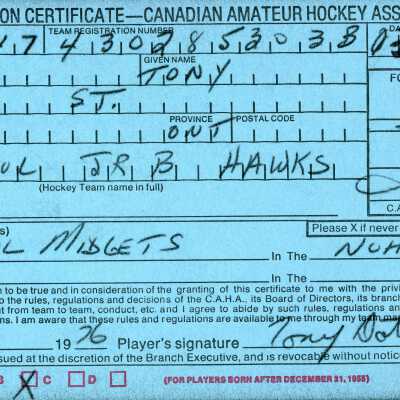 ON CERTIFICATE—CANADIAN AMATEUR HOCKEY ASS
TEAM REGISTRATION NUMBER DA
7 4302853033
GIVEN NAME
TONY
ST.
PROVINCE POSTAL CODE
ONT
JR B HAWKS
(Hockey Team name in full)
C.A
s) Please X if never
MIDGETS In The
In The
n to be true and in consideration of the granting of this certificate to me with the privi
to the rules, regulations and decisions of the C.A.H.A., its Board of Directors, its branch
t from team to team, conduct, etc. and I agree to abide by such rules, regulations
ns. I am aware that these rules and regulations are available to me through my team ma
1976 Player's signature Tony
sued at the discretion of the Branch Executive, and is revocable without notice
B X C D (FOR PLAYERS BORN AFTER DECEMBER 31, 1955)